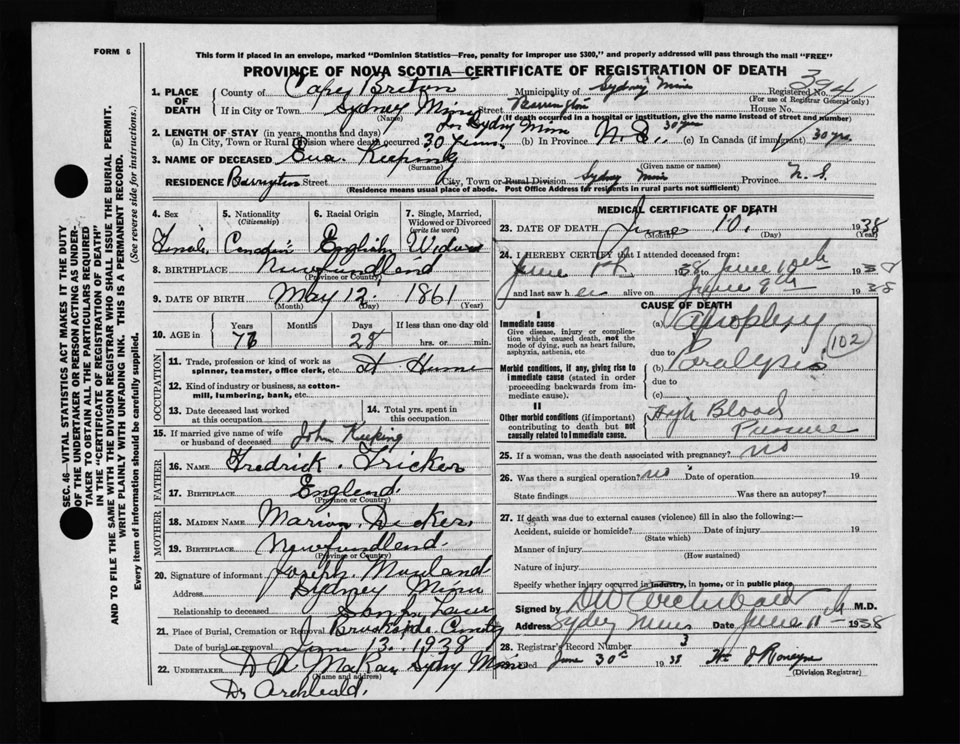 FORM 6
This form if placed in an envelope, marked "Dominion Statistics—Free, penalty for improper use $300," and properly addressed will pass through the mail "FREE"
PROVINCE OF NOVA SCOTIA—CERTIFICATE OF REGISTRATION OF DEATH
3941
1. PLACE OF DEATH County of Cape Breton Municipality of Sydney Mines Registered No.
(For use of Registrar General only)
If in City or Town Sydney Mines Street Barrington House No.
(Name) (If death occurred in a hospital or institution, give the name instead of street and number)
2. LENGTH OF STAY (in years, months and days)
(a) In City, Town or Rural Division where death occurred 30 (b) In Province N.S. 30 yrs (c) In Canada (if immigrant) 30 yrs.
3. NAME OF DECEASED Eva. Keeping
(Surname) (Given name or names)
RESIDENCE Barrington Street City, Town or Rural Division Sydney Mines Province N.S
(Residence means usual place of abode. Post Office Address for residents in rural parts not sufficient)
4. Sex 5. Nationality (Citizenship) 6. Racial Origin 7. Single, Married, Widowed or Divorced (write the word)
Female English
8. BIRTHPLACE Newfundlend
(Province or Country)
9. DATE OF BIRTH May 12 1861
(Month) (Day) (Year)
10. AGE in Years Months Days If less than one day old
28 hrs. or min.
OCCUPATION
11. Trade, profession or kind of work as spinner, teamster, office clerk, etc. At Hume
12. Kind of industry or business, as cotton-mill, lumbering, bank, etc.
13. Date deceased last worked at this occupation
14. Total yrs. spent in this occupation
15. If married give name of wife or husband of deceased John Keeping
FATHER
16. NAME Fredrick. Fricker
17. BIRTHPLACE England
(Province or Country)
MOTHER
18. MAIDEN NAME Marion Dicker
19. BIRTHPLACE Newfundlend.
(Province or Country)
20. Signature of informant Joseph
Address Sydney Mines
Relationship to deceased Son in Law
21. Place of Burial, Cremation or Removal
Date of burial or removal June 13. 1938
22. UNDERTAKER Sydny Mines
(Name and address)
Dr Archbald.
MEDICAL CERTIFICATE OF DEATH
23. DATE OF DEATH June 10, 1938
(Month) (Day) (Year)
24. I HEREBY CERTIFY that I attended deceased from:
June 38 to June 10th 1938
and last saw her alive on June 9th 1938
CAUSE OF DEATH
I
Immediate cause
Give disease, injury or complication which caused death, not the mode of dying, such as heart failure, asphyxia, asthenia, etc
(a) Apoplexy
due to
Morbid conditions, if any, giving rise to immediate cause (stated in order proceeding backwards from immediate cause).
(b) Paralysis
102
due to
(c)
II
Other morbid conditions (if important) contributing to death but not causally related to immediate cause.
High Blood
Pressure
25. If a woman, was the death associated with pregnancy? no
26. Was there a surgical operation? no Date of operation 19
State findings Was there an autopsy?
27. If death was due to external causes (violence) fill in also the following:—
Accident, suicide or homicide? Date of injury 19
(State which)
Manner of injury
(How sustained)
Nature of injury
Specify whether injury occurred in industry, in home, or in public place
Signed by D W Archibald M.D.
Address Sydney Mines Date June 11th 1938
28. Registrar's Record Number 3
Filed June 30th 1938
(Division Registrar)
SEC. 46—VITAL STATISTICS ACT MAKES IT THE DUTY
OF THE UNDERTAKER OR PERSON ACTING AS UNDER-
TAKER TO OBTAIN ALL THE PARTICULARS REQUIRED
IN THE "CERTIFICATE OF REGISTRATION OF DEATH"
AND TO FILE THE SAME WITH THE DIVISION REGISTRAR WHO SHALL ISSUE THE BURIAL PERMIT.
WRITE PLAINLY WITH UNFADING INK. THIS IS A PERMANENT RECORD.
Every item of information should be carefully supplied. (See reverse side for instructions.)